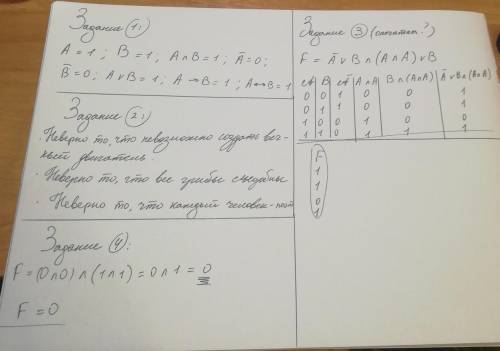 Задание 1:
A = 1 ; B = 1 ; A ∧ B = 1 ; Ā = 0 ;
B̄ = 0 ; A ∨ B = 1 ; A → B = 1 ; A ↔ B = 1
Задание 2:
· Неверно то, что невозможно создать веч-
ный двигатель.
· Неверно то, что все грибы съедобны
· Неверно то, что каждый человек - поэт
Задание 4:
F = (0 ∧ 0) ∧ (1 ∧ 1) = 0 ∧ 1 = 0
F = 0
Задание 3 ( ?)
F = Ā ∨ B ∧ (A ∧ A) ∨ B
A B Ā A∧A B∧(A∧A) Ā∨B∧(A∧A)
0 0 1 0 0 1
0 1 1 0 0 1
1 0 0 1 0 0
1 1 0 1 1 1
F
1
1
0
1